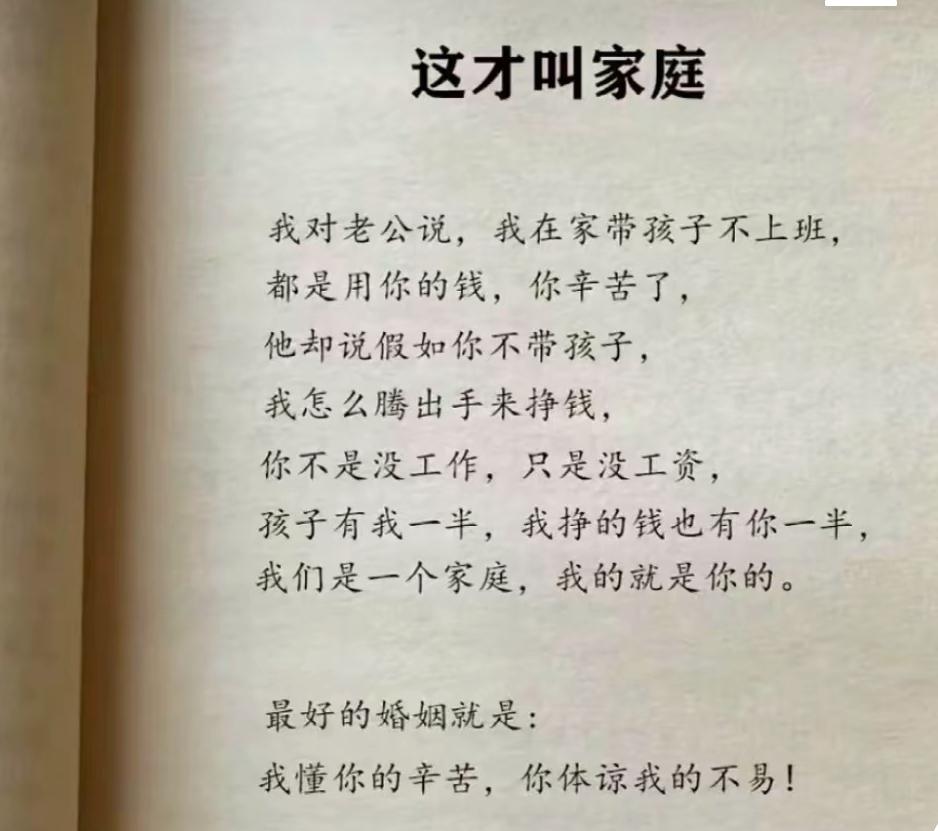 这才叫家庭
我对老公说，我在家带孩子不上班，
都是用你的钱，你辛苦了，
他却说假如你不带孩子，
我怎么腾出手来挣钱，
你不是没工作，只是没工资，
孩子有我一半，我挣的钱也有你一半，
我们是一个家庭，我的就是你的。
最好的婚姻就是：
我懂你的辛苦，你体谅我的不易！